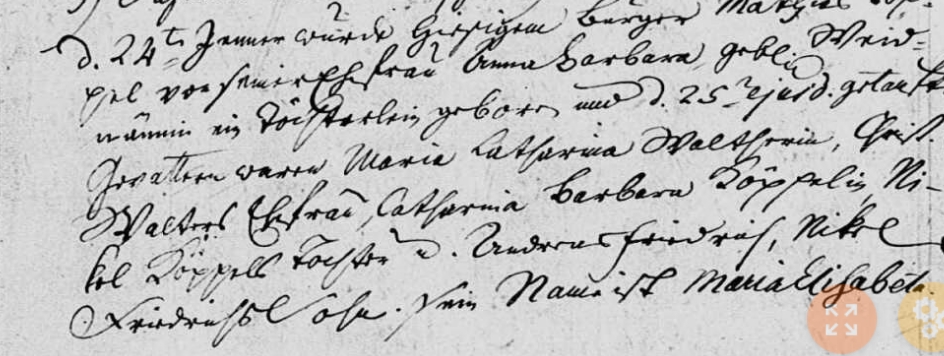 d. 24ten Jenner wurde hiesigem Bürger Mathes Köp-
pel von seiner Ehefrau Anna Barbara, gebl. Weid-
männin ein Töchterlein geboren und d. 25. ejusd. getauft.
Gevattern waren Maria Catharina Waltherin, Christ.
Walters Ehefrau, Catharina Barbara Köppelin, Ni-
kel Köppels Tochter u. Andreas Friedrich, Nikel
Friedrichs Sohn. Sein Name ist Maria Elisabeta.